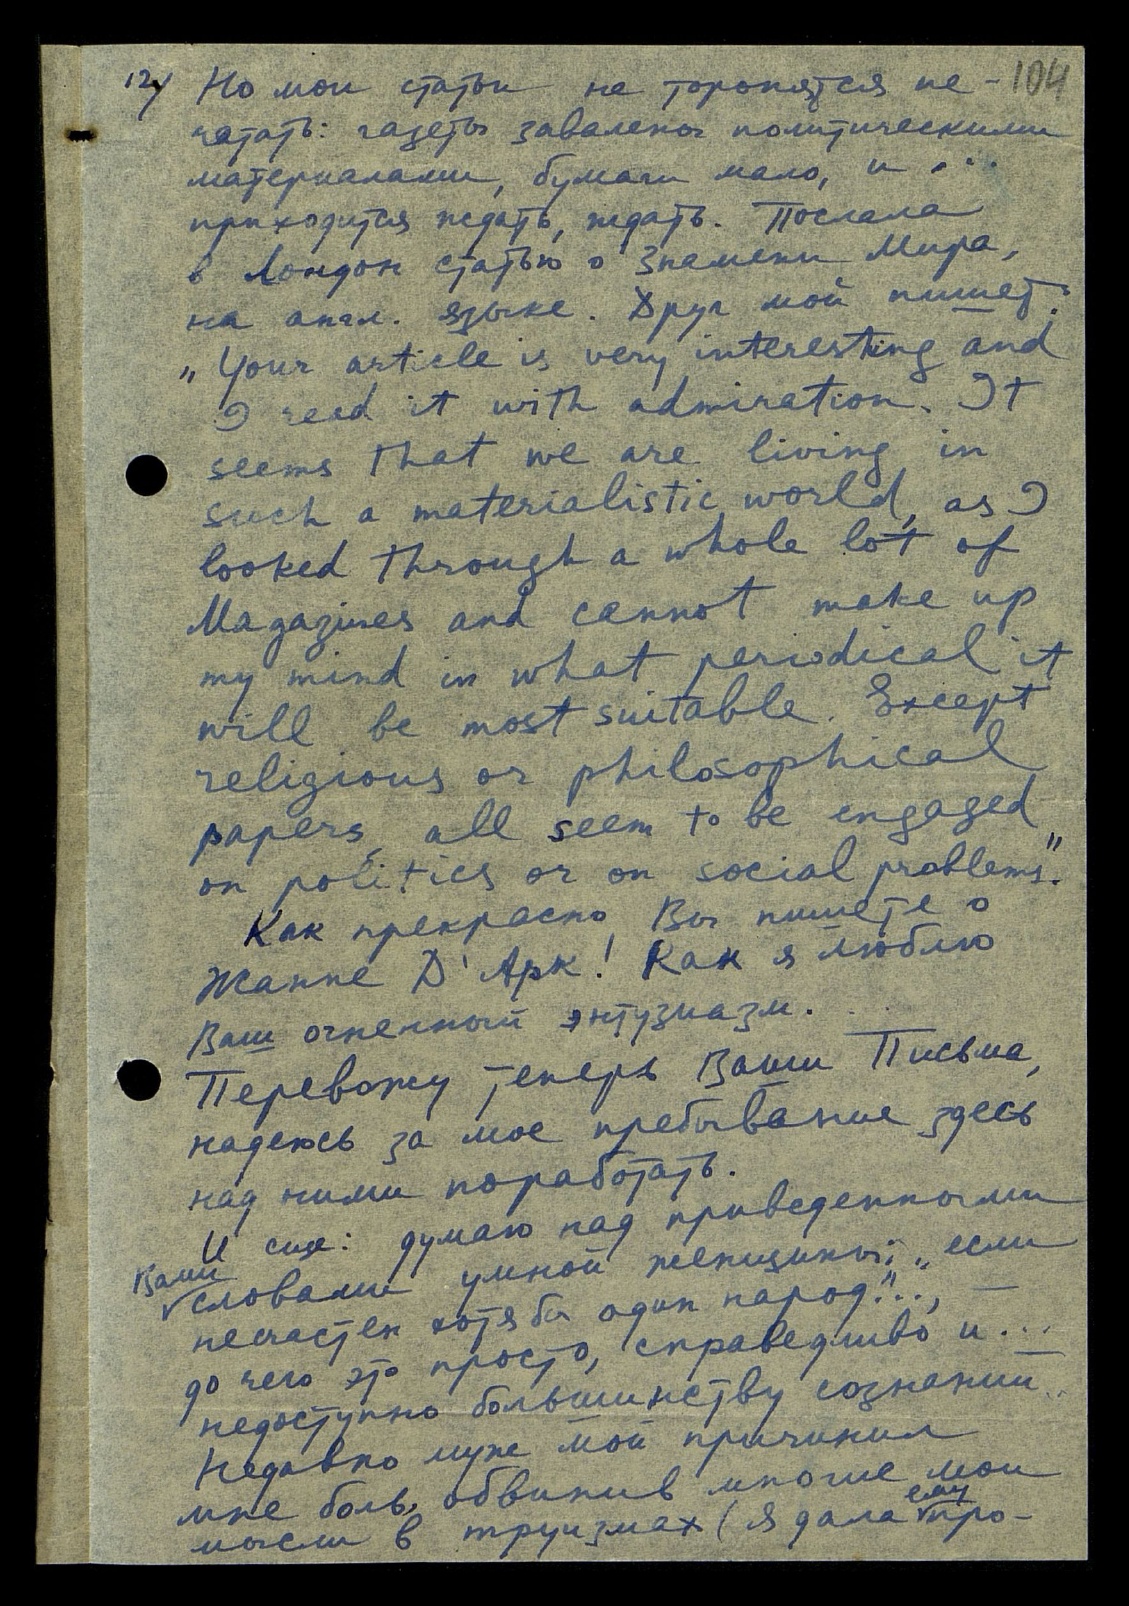 12) Но мои статьи не торопятся пе- 104
чатать: газеты завалены политическими
материалами, бумаги мало, и ...
приходится ждать, ждать. Послала
в Лондон статью о Знамени Мира,
на англ. языке. Друг мой пишет:
„Your article is very interesting and
I read it with admiration. It
seems that we are living in
such a materialistic world, as I
looked through a whole lot of
Magazines and cannot make up
my mind in what periodical it
will be most suitable. Except
religious or philosophical
papers, all seem to be engaged
on politics or on social problems."
Как прекрасно Вы пишете о
Жанне Д'Арк! Как я люблю
Ваш огненный энтузиазм.
Перевожу теперь Ваши Письма,
надеюсь за мое пребывание здесь
над ними поработать.
И еще: думаю над приведенными
Вами словами умной женщины: „если
несчастен хотя бы один народ"...,—
до чего это просто, справедливо и...
недоступно большинству сознаний...
Недавно муж мой причинил
мне боль, обвинив многие мои
мысли в труизмах (я дала ему про-